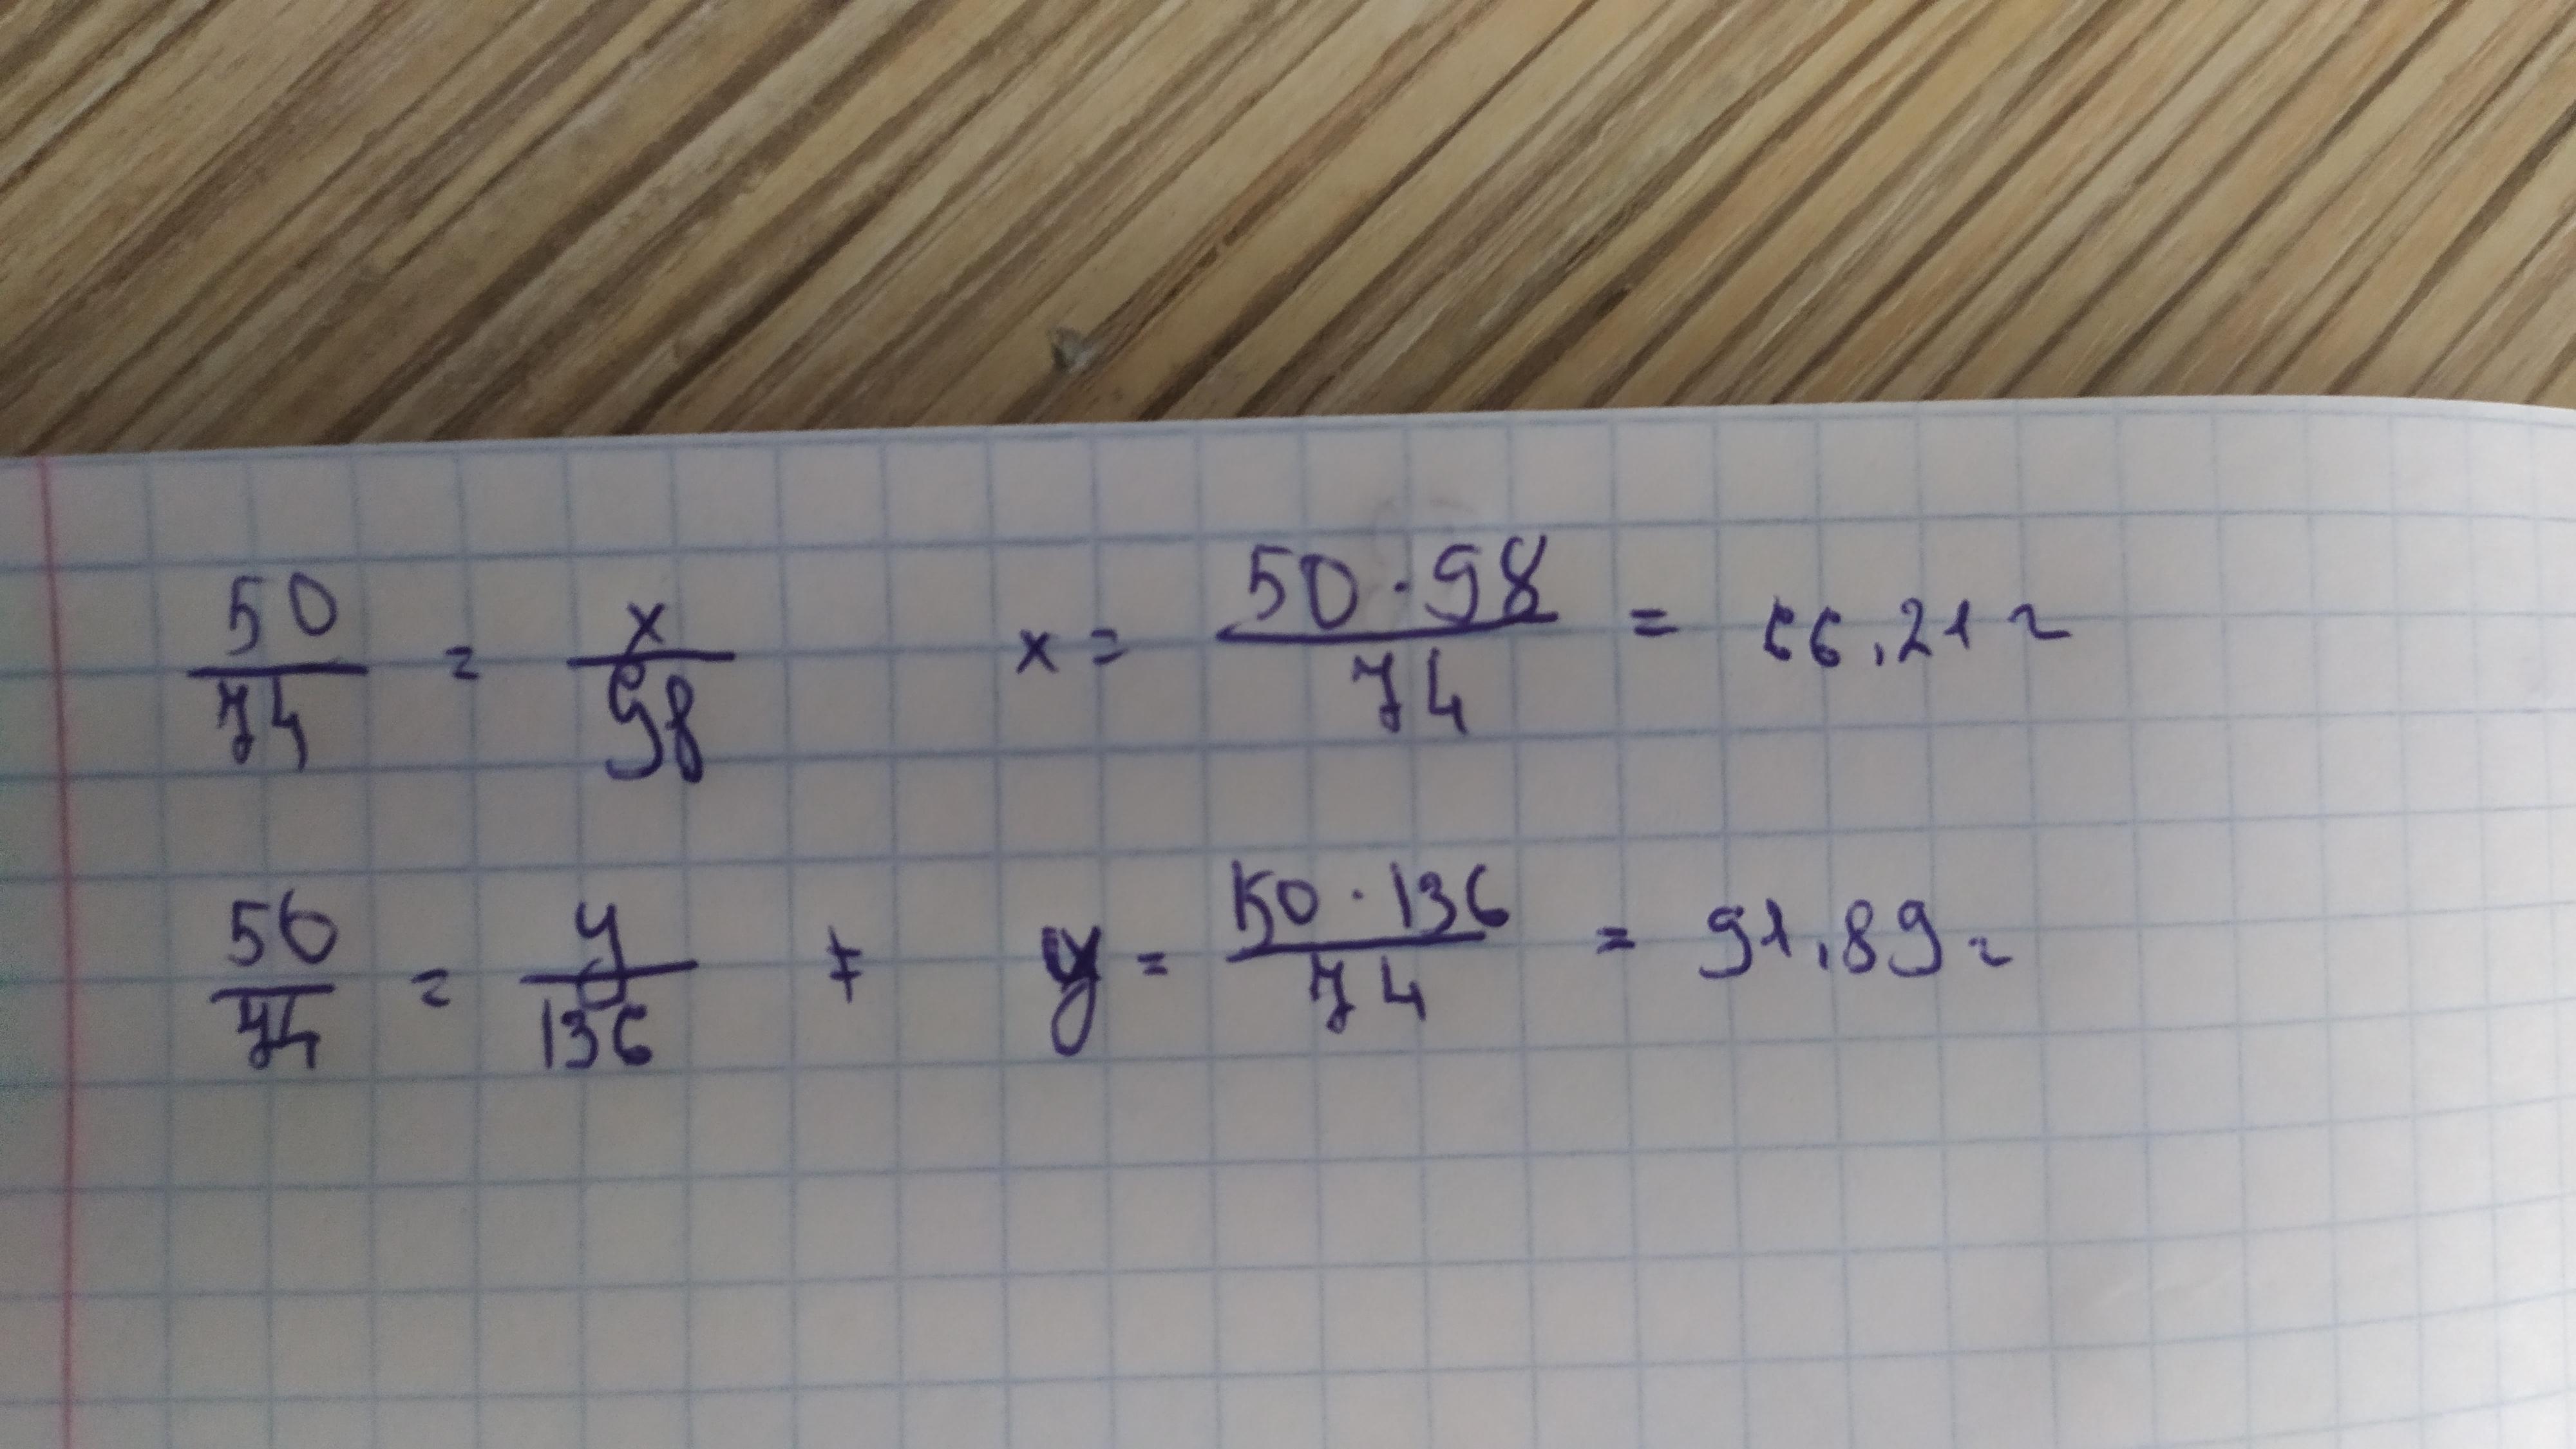 50/74 = x/98 x = 50·98/74 = 66,21 г
50/74 = y/136 y = 50·136/74 = 91,89 г